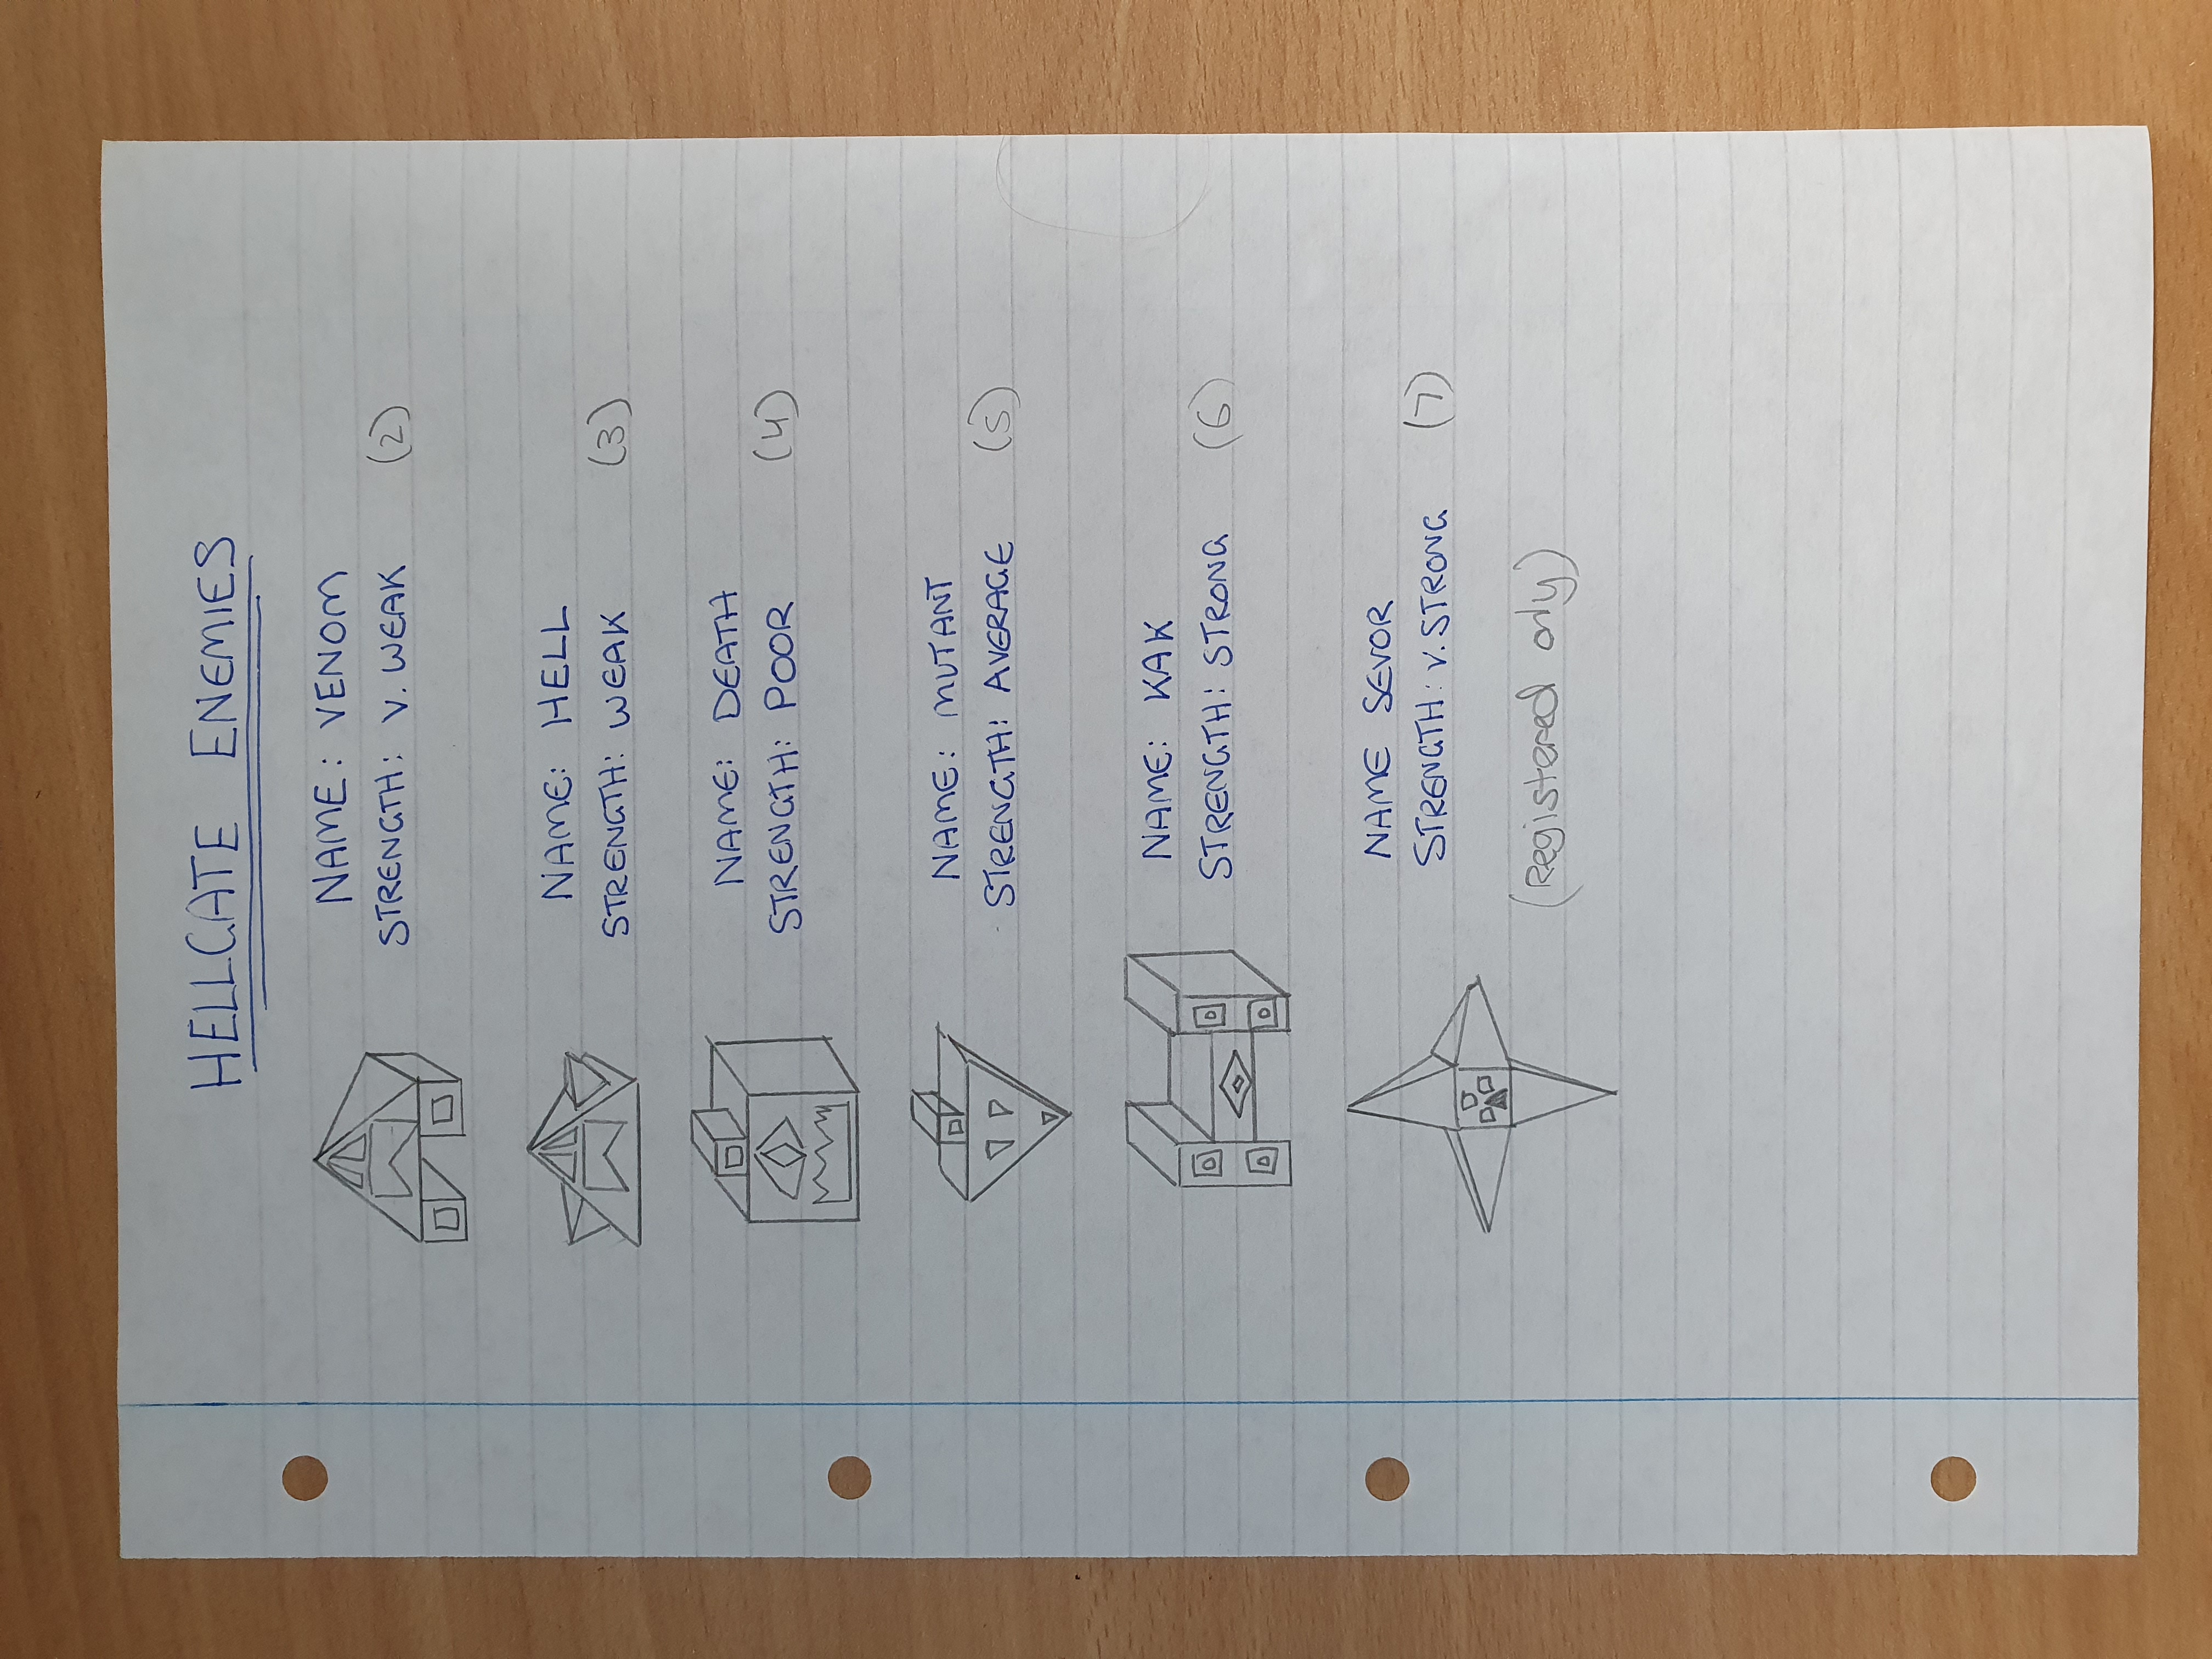 HELLGATE ENEMIES
NAME: VENOM
STRENGTH: V. WEAK (2)
NAME: HELL
STRENGTH: WEAK (3)
NAME: DEATH
STRENGTH: POOR (4)
NAME: MUTANT
STRENGTH: AVERAGE (5)
NAME: KAK
STRENGTH: STRONG (6)
NAME SEVOR
STRENGTH: V. STRONG (7)
(Registered only)